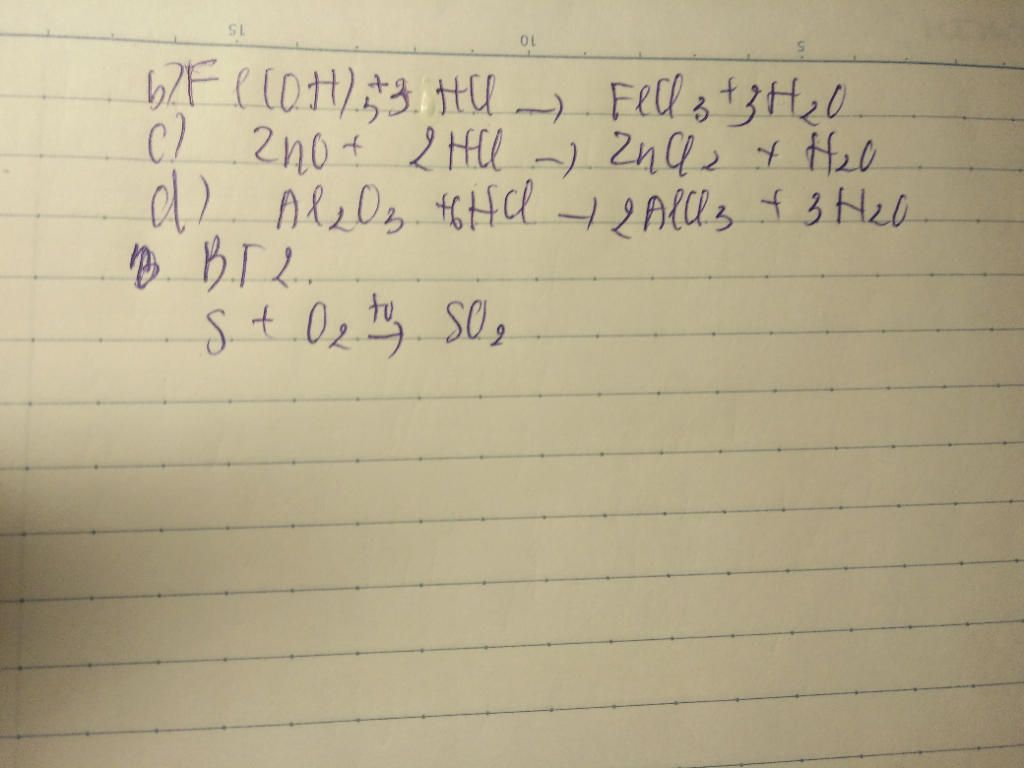 15 10 5
b) Fe(OH)3 + 3 HCl → FeCl3 + 3H2O
c) ZnO + 2HCl → ZnCl2 + H2O
d) Al2O3 + 6HCl → 2AlCl3 + 3H2O
BT2.
S + O2 →(to) SO2